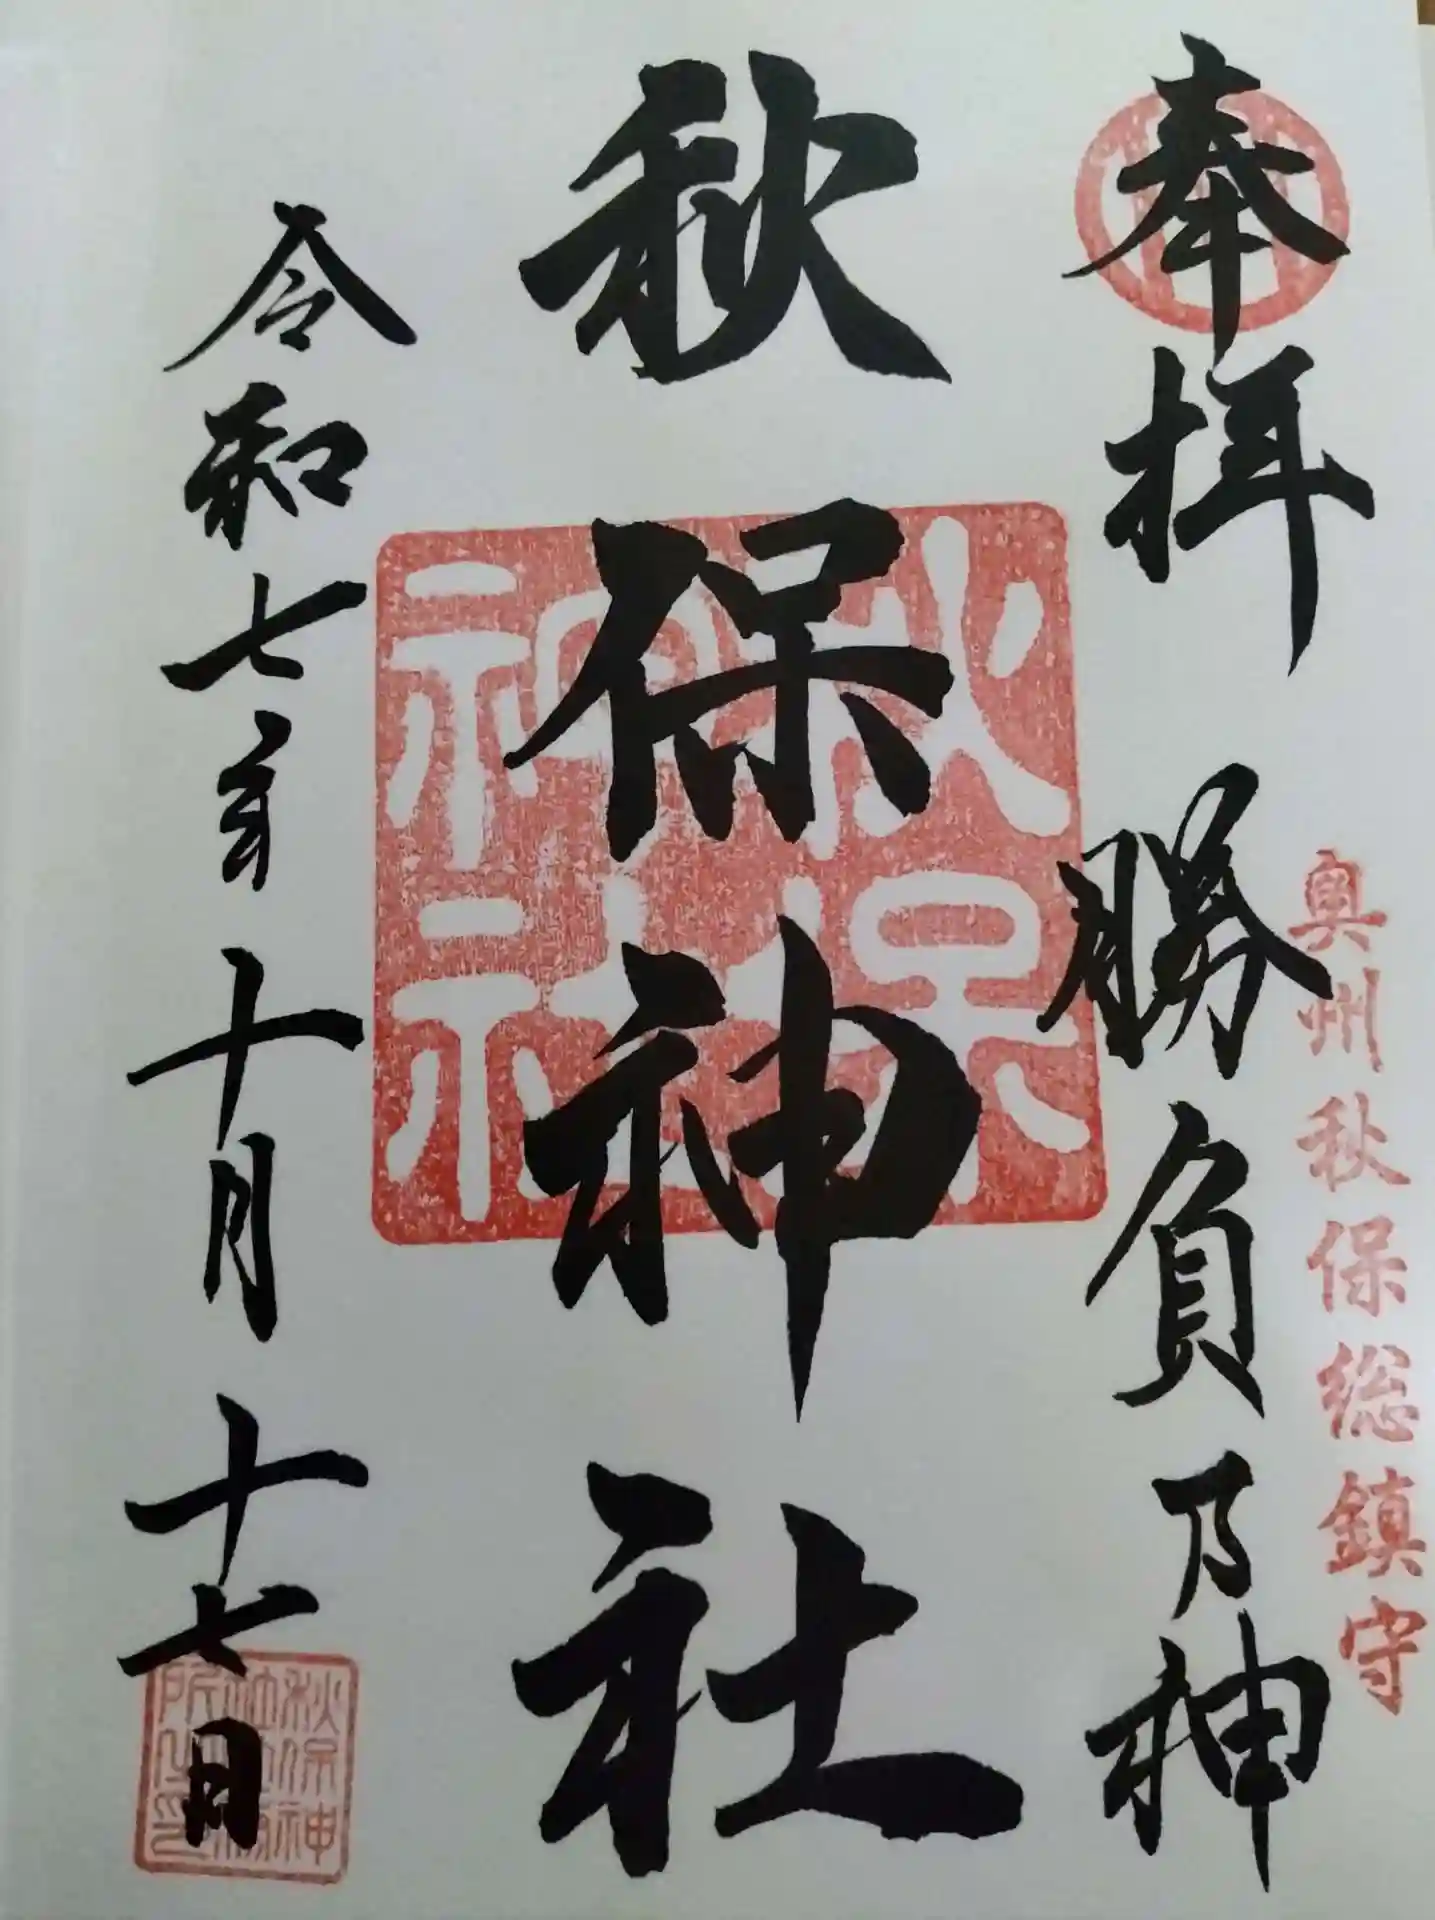 奉拝
勝負乃神
奥州秋保総鎮守
秋保神社
秋保
神社
令和七年十月十七日
秋保神